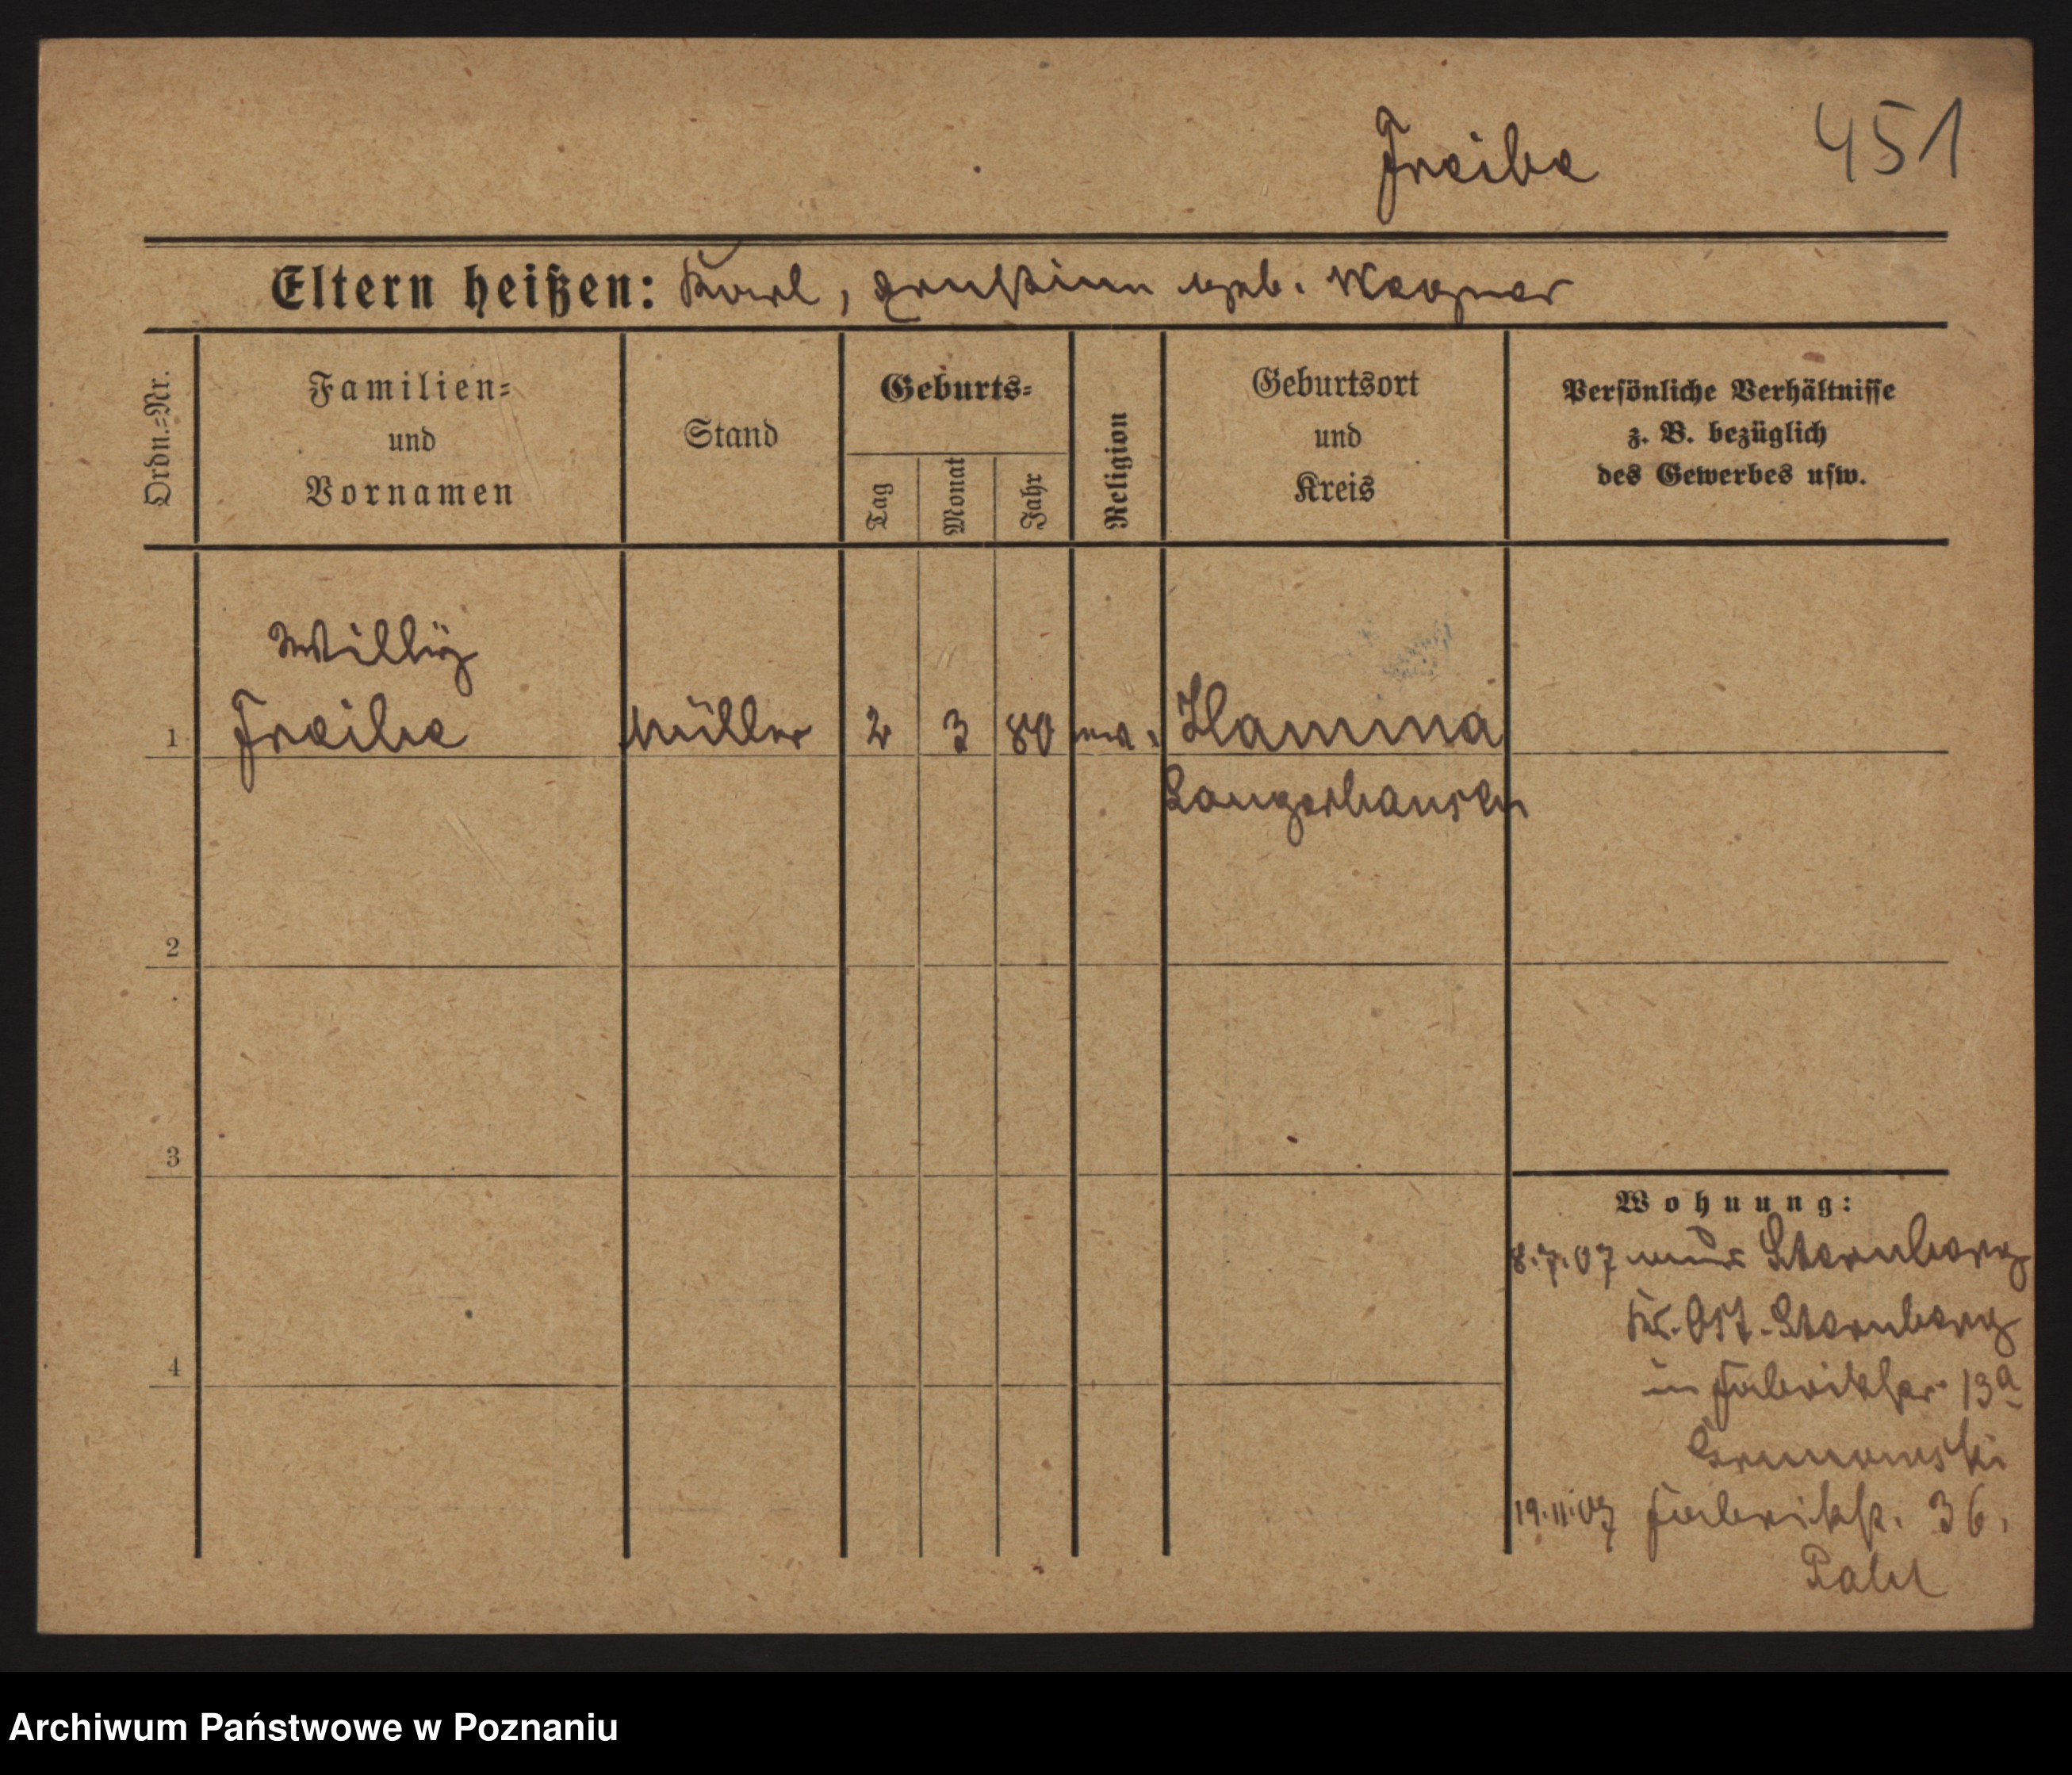 451
Freibe
Eltern heißen: Karl, Ernstine geb. Wagner
Ordn.=Nr.
Familien=
und
Vornamen
Stand
Geburts=
Tag
Monat
Jahr
Religion
Geburtsort
und
Kreis
Persönliche Verhältnisse
z. B. bezüglich
des Gewerbes usw.
Willy
1 Freibe Müller 2 3 80 Hamma
Sangerhausen
2
3
4
Wohnung:
8.7.07 aus Sternberg
Kr. Ost-Sternberg
in Fabrikstr. 13a
19.11.07 Fabrikstr. 36,
Archiwum Państwowe w Poznaniu